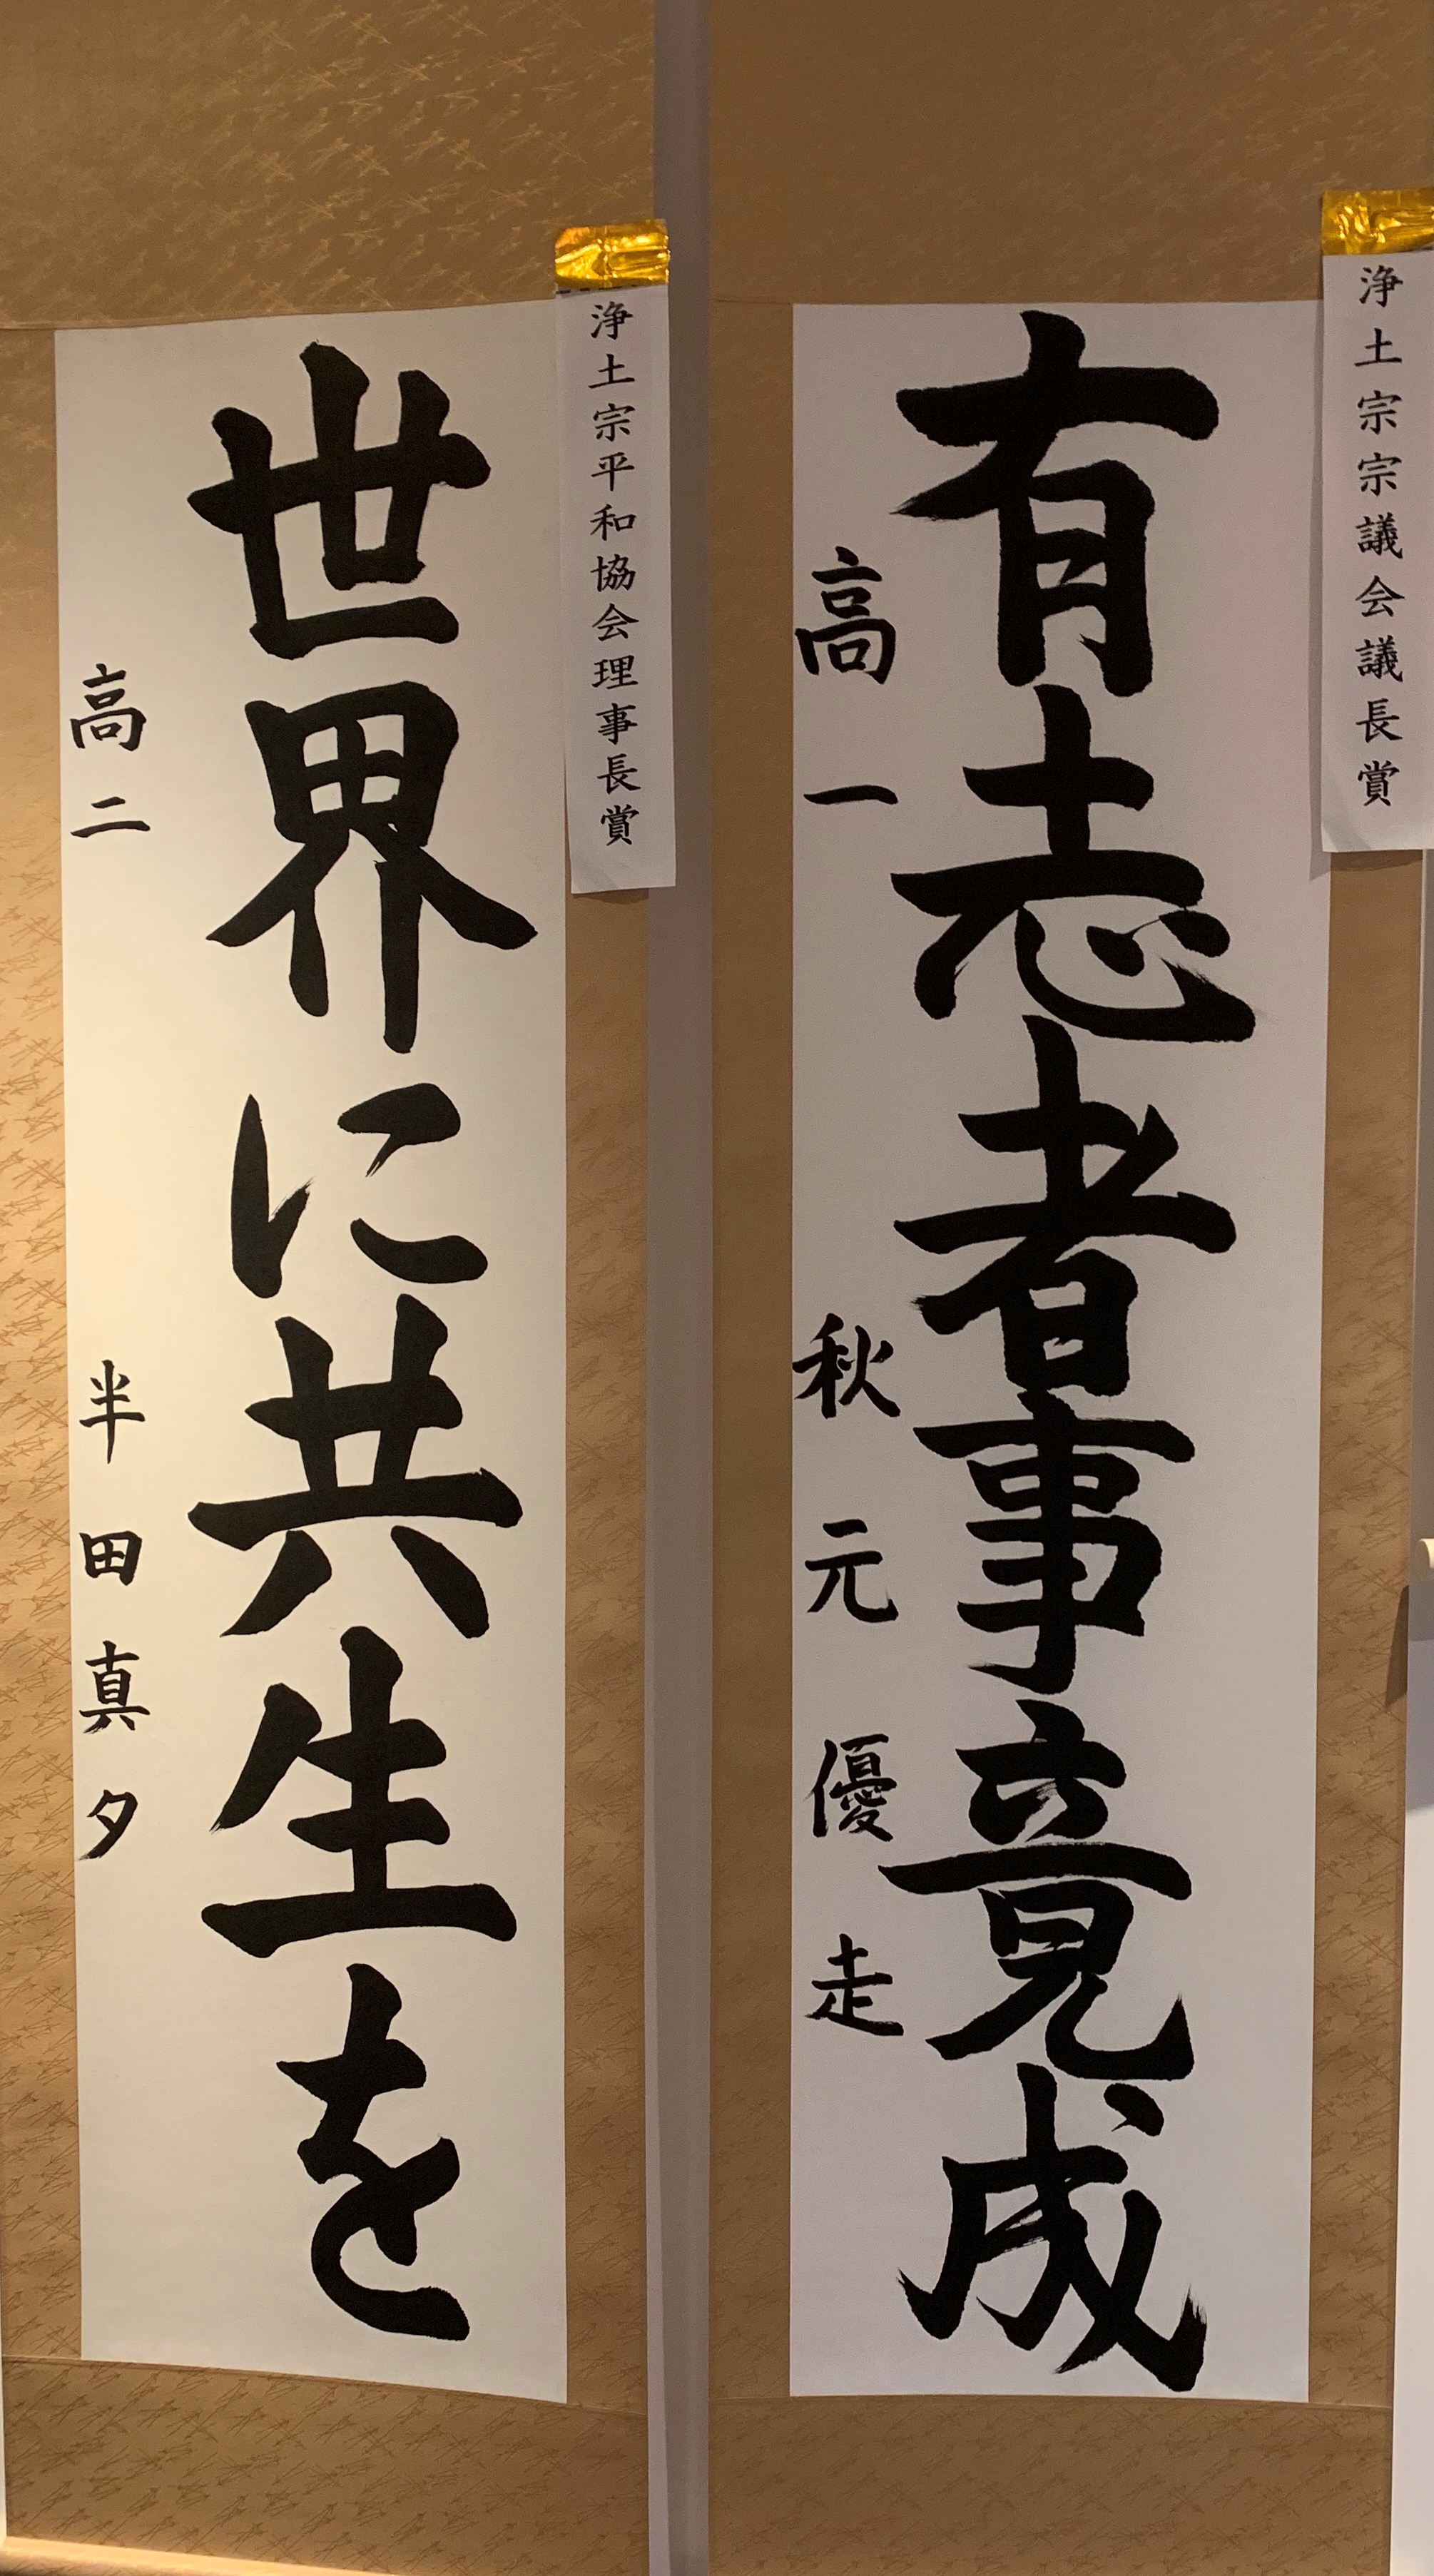 浄土宗宗議会議長賞
有志者事竟成
高一 秋元優走
浄土宗平和協会理事長賞
世界に共生を
高二 半田真夕